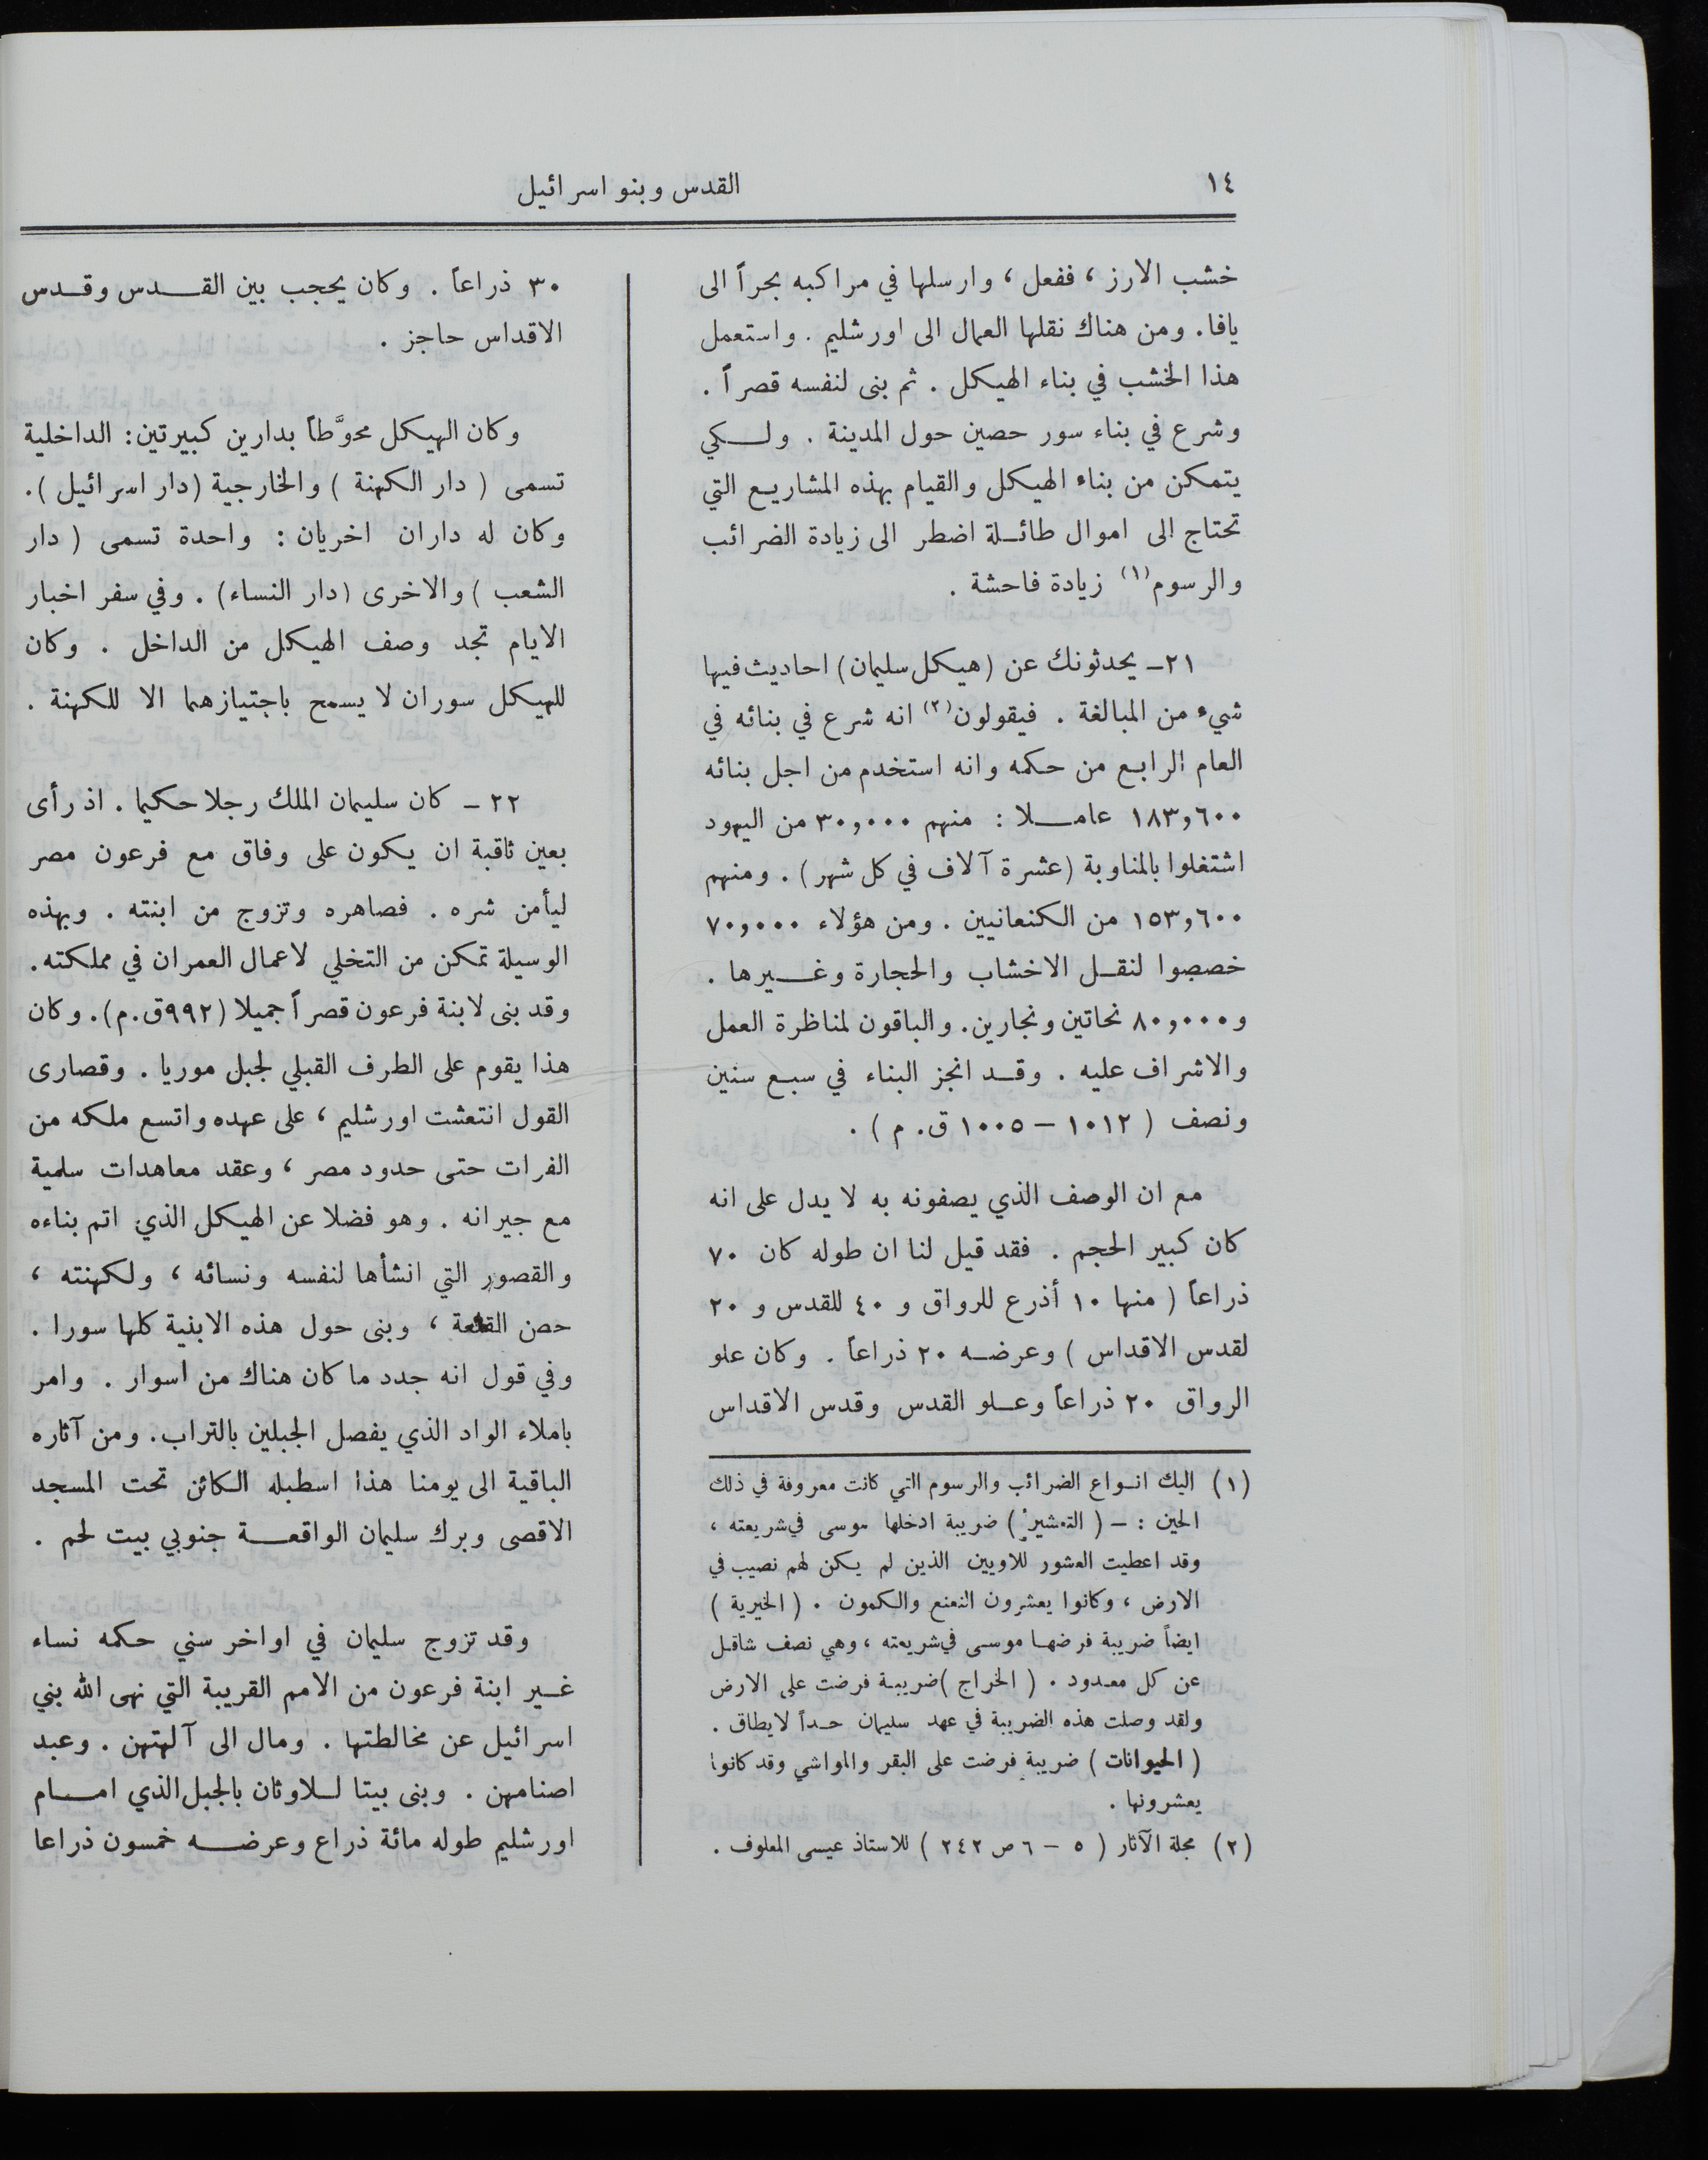 ١٤
القدس وبنو اسرائيل
خشب الارز ، ففعل ، وارسلها في مراكبه بحراً الى
يافا. ومن هناك نقلها العمال الى اورشليم . واستعمل
هذا الخشب في بناء الهيكل . ثم بنى لنفسه قصراً .
وشرع في بناء سور حصين حول المدينة . ولكي
يتمكن من بناء الهيكل والقيام بهذه المشاريع التي
تحتاج الى اموال طائلة اضطر الى زيادة الضرائب
والرسوم(١) زيادة فاحشة .
٢١ــ يحدثونك عن (هيكل سليمان) احاديث فيها
شيء من المبالغة . فيقولون(٢) انه شرع في بنائه في
العام الرابع من حكمه وانه استخدم من اجل بنائه
١٨٣,٦٠٠ عاملا : منهم ٣٠,٠٠٠ من اليهود
اشتغلوا بالمناوبة (عشرة آلاف في كل شهر) . ومنهم
١٥٣,٦٠٠ من الكنعانيين . ومن هؤلاء ٧٠,٠٠٠
خصصوا لنقل الاخشاب والحجارة وغيرها .
و٨٠,٠٠٠ نحاتين ونجارين. والباقون لمناظرة العمل
والاشراف عليه . وقد انجز البناء في سبع سنين
ونصف ( ١٠١٢ – ١٠٠٥ ق. م ) .
مع ان الوصف الذي يصفونه به لا يدل على انه
كان كبير الحجم . فقد قيل لنا ان طوله كان ٧٠
ذراعاً ( منها ١٠ أذرع للرواق و ٤٠ للقدس و ٢٠
لقدس الاقداس ) وعرضه ٢٠ ذراعاً . وكان علو
الرواق ٢٠ ذراعاً وعلو القدس وقدس الاقداس
(١) اليك انواع الضرائب والرسوم التي كانت معروفة في ذلك
الحين : – ( التعشير ) ضريبة ادخلها موسى في شريعته ،
وقد اعطيت العشور للاويين الذين لم يكن لهم نصيب في
الارض ، وكانوا يعشرون النعنع والكمون . ( الخيرية )
ايضاً ضريبة فرضها موسى في شريعته ، وهي نصف شاقل
عن كل معدود . ( الخراج ) ضريبة فرضت على الارض
ولقد وصلت هذه الضريبة في عهد سليمان حداً لا يطاق .
( الحيوانات ) ضريبة فرضت على البقر والمواشي وقد كانوا
يعشرونها .
(٢) مجلة الآثار ( ٥ – ٦ ص ٢٤٢ ) للاستاذ عيسى المعلوف .
٣٠ ذراعاً . وكان يحجب بين القدس وقدس
الاقداس حاجز .
وكان الهيكل محوَّطاً بدارين كبيرتين: الداخلية
تسمى ( دار الكهنة ) والخارجية (دار اسرائيل ).
وكان له داران اخريان : واحدة تسمى ( دار
الشعب ) والاخرى (دار النساء) . وفي سفر اخبار
الايام تجد وصف الهيكل من الداخل . وكان
للهيكل سوران لا يسمح باجتيازهما الا للكهنة .
٢٢ ــ كان سليمان الملك رجلا حكيما . اذ رأى
بعين ثاقبة ان يكون على وفاق مع فرعون مصر
ليأمن شره . فصاهره وتزوج من ابنته . وبهذه
الوسيلة تمكن من التخلي لاعمال العمران في مملكته.
وقد بنى لابنة فرعون قصراً جميلا (٩٩٢ق.م). وكان
هذا يقوم على الطرف القبلي لجبل موريا . وقصارى
القول انتعشت اورشليم ، على عهده واتسع ملكه من
الفرات حتى حدود مصر ، وعقد معاهدات سلمية
مع جيرانه . وهو فضلا عن الهيكل الذي اتم بناءه
والقصور التي انشأها لنفسه ونسائه ، ولكهنته ،
حصن القلعة ، وبنى حول هذه الابنية كلها سورا .
وفي قول انه جدد ما كان هناك من اسوار . وامر
باملاء الواد الذي يفصل الجبلين بالتراب. ومن آثاره
الباقية الى يومنا هذا اسطبله الكائن تحت المسجد
الاقصى وبرك سليمان الواقعة جنوبي بيت لحم .
وقد تزوج سليمان في اواخر سني حكمه نساء
غير ابنة فرعون من الامم القريبة التي نهى الله بني
اسرائيل عن مخالطتها . ومال الى آلهتهن . وعبد
اصنامهن . وبنى بيتا للاوثان بالجبل الذي امام
اورشليم طوله مائة ذراع وعرضه خمسون ذراعا